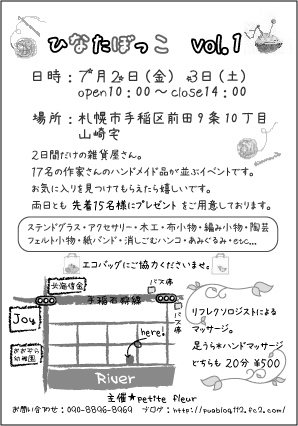 ひなたぼっこ vol.1
日時：7月2日（金） 3日（土）
open10：00～close14：00
場所：札幌市手稲区前田9条10丁目
山崎宅
2日間だけの雑貨屋さん。
17名の作家さんのハンドメイド品が並ぶイベントです。
お気に入りを見つけてもらえたら嬉しいです。
両日とも 先着15名様にプレゼント をご用意しております。
ステンドグラス・アクセサリー・木工・布小物・編み小物・陶芸
フェルト小物・紙バンド・消しごむハンコ・あみぐるみ・etc...
エコバッグにご協力くださいませ。
北海信金
バス停
手稲右岸線
Joy
バス停
here!
おおぞら幼稚園
River
リフレクソロジストによる
マッサージ。
足うら*ハンドマッサージ
どちらも 20分 ¥500
主催★petite fleur
お問い合わせ：090-8896-8969 ブログ：http://puablog112.fc2.com/